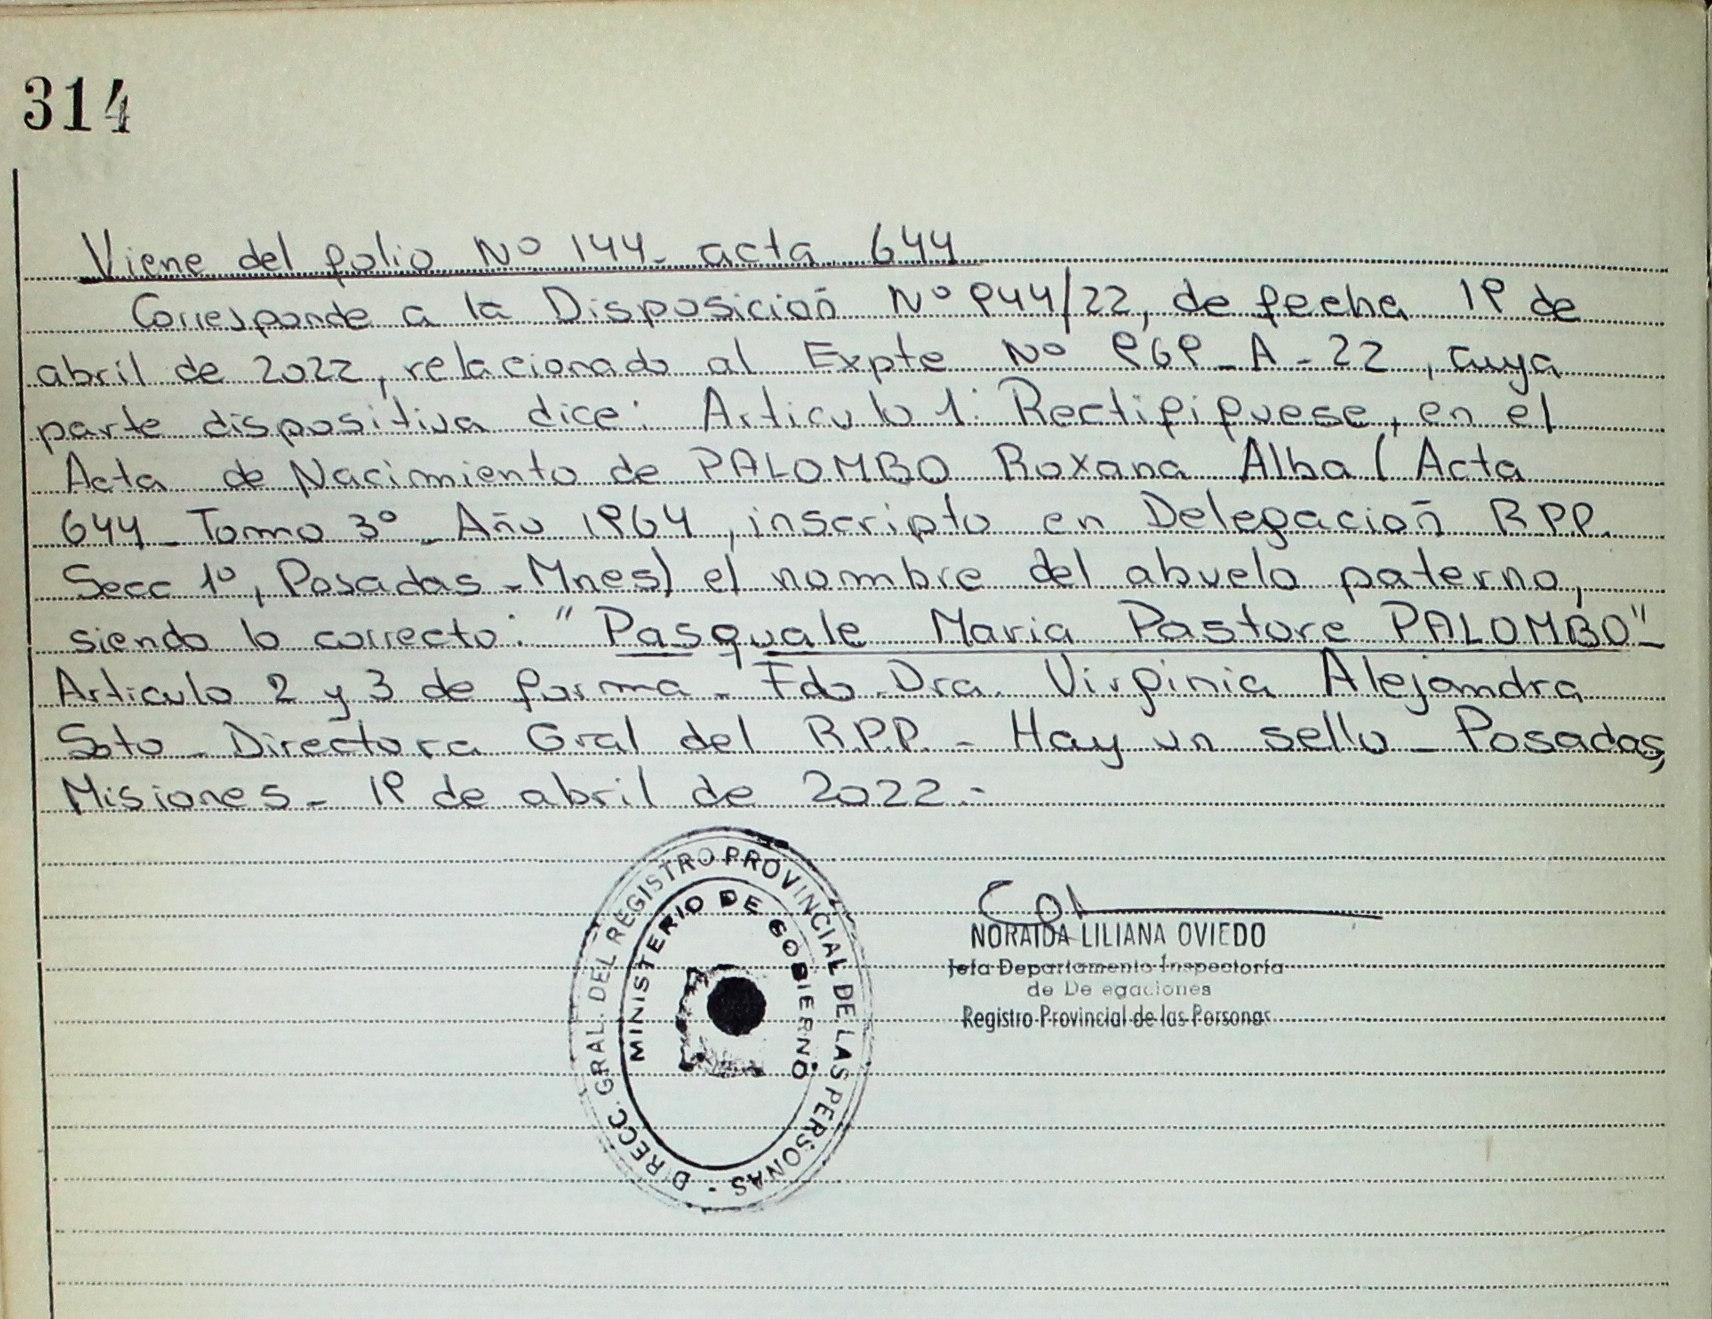 314
Viene del folio Nº 144_ acta 644
Corresponde a la Disposición Nº 944/22, de fecha 19 de
abril de 2022, relacionado al Expte Nº 969_A-22, cuya
parte dispositiva dice: Articulo 1: Rectififuese, en el
Acta de Nacimiento de PALOMBO Roxana Alba (Acta
644_Tomo 3º_Año 1964, inscripto en Delegación R.P.P.
Secc 1º, Posadas-Mnes) el nombre del abuelo paterno,
siendo lo correcto: "Pasquale Maria Pastore PALOMBO"_
Articulo 2 y 3 de forma_ Fdo. Dra. Virginia Alejandra
Soto_Directora Gral del R.P.P.- Hay un sello_Posadas,
Misiones_ 19 de abril de 2022.-
DIRECC. GRAL. DEL REGISTRO PROVINCIAL DE LAS PERSONAS -
MINISTERIO DE GOBIERNO
NORAIDA LILIANA OVIEDO
Jefa Departamento Inspectoría
de De egaciones
Registro Provincial de las Personas